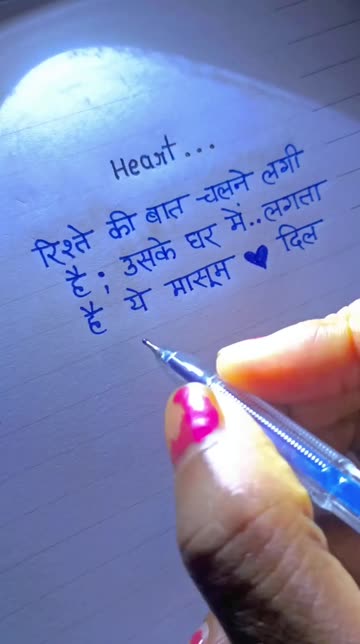 Heart...
रिश्ते की बात चलने लगी
है; उसके घर में..लगता
है ये मासूम 💙 दिल